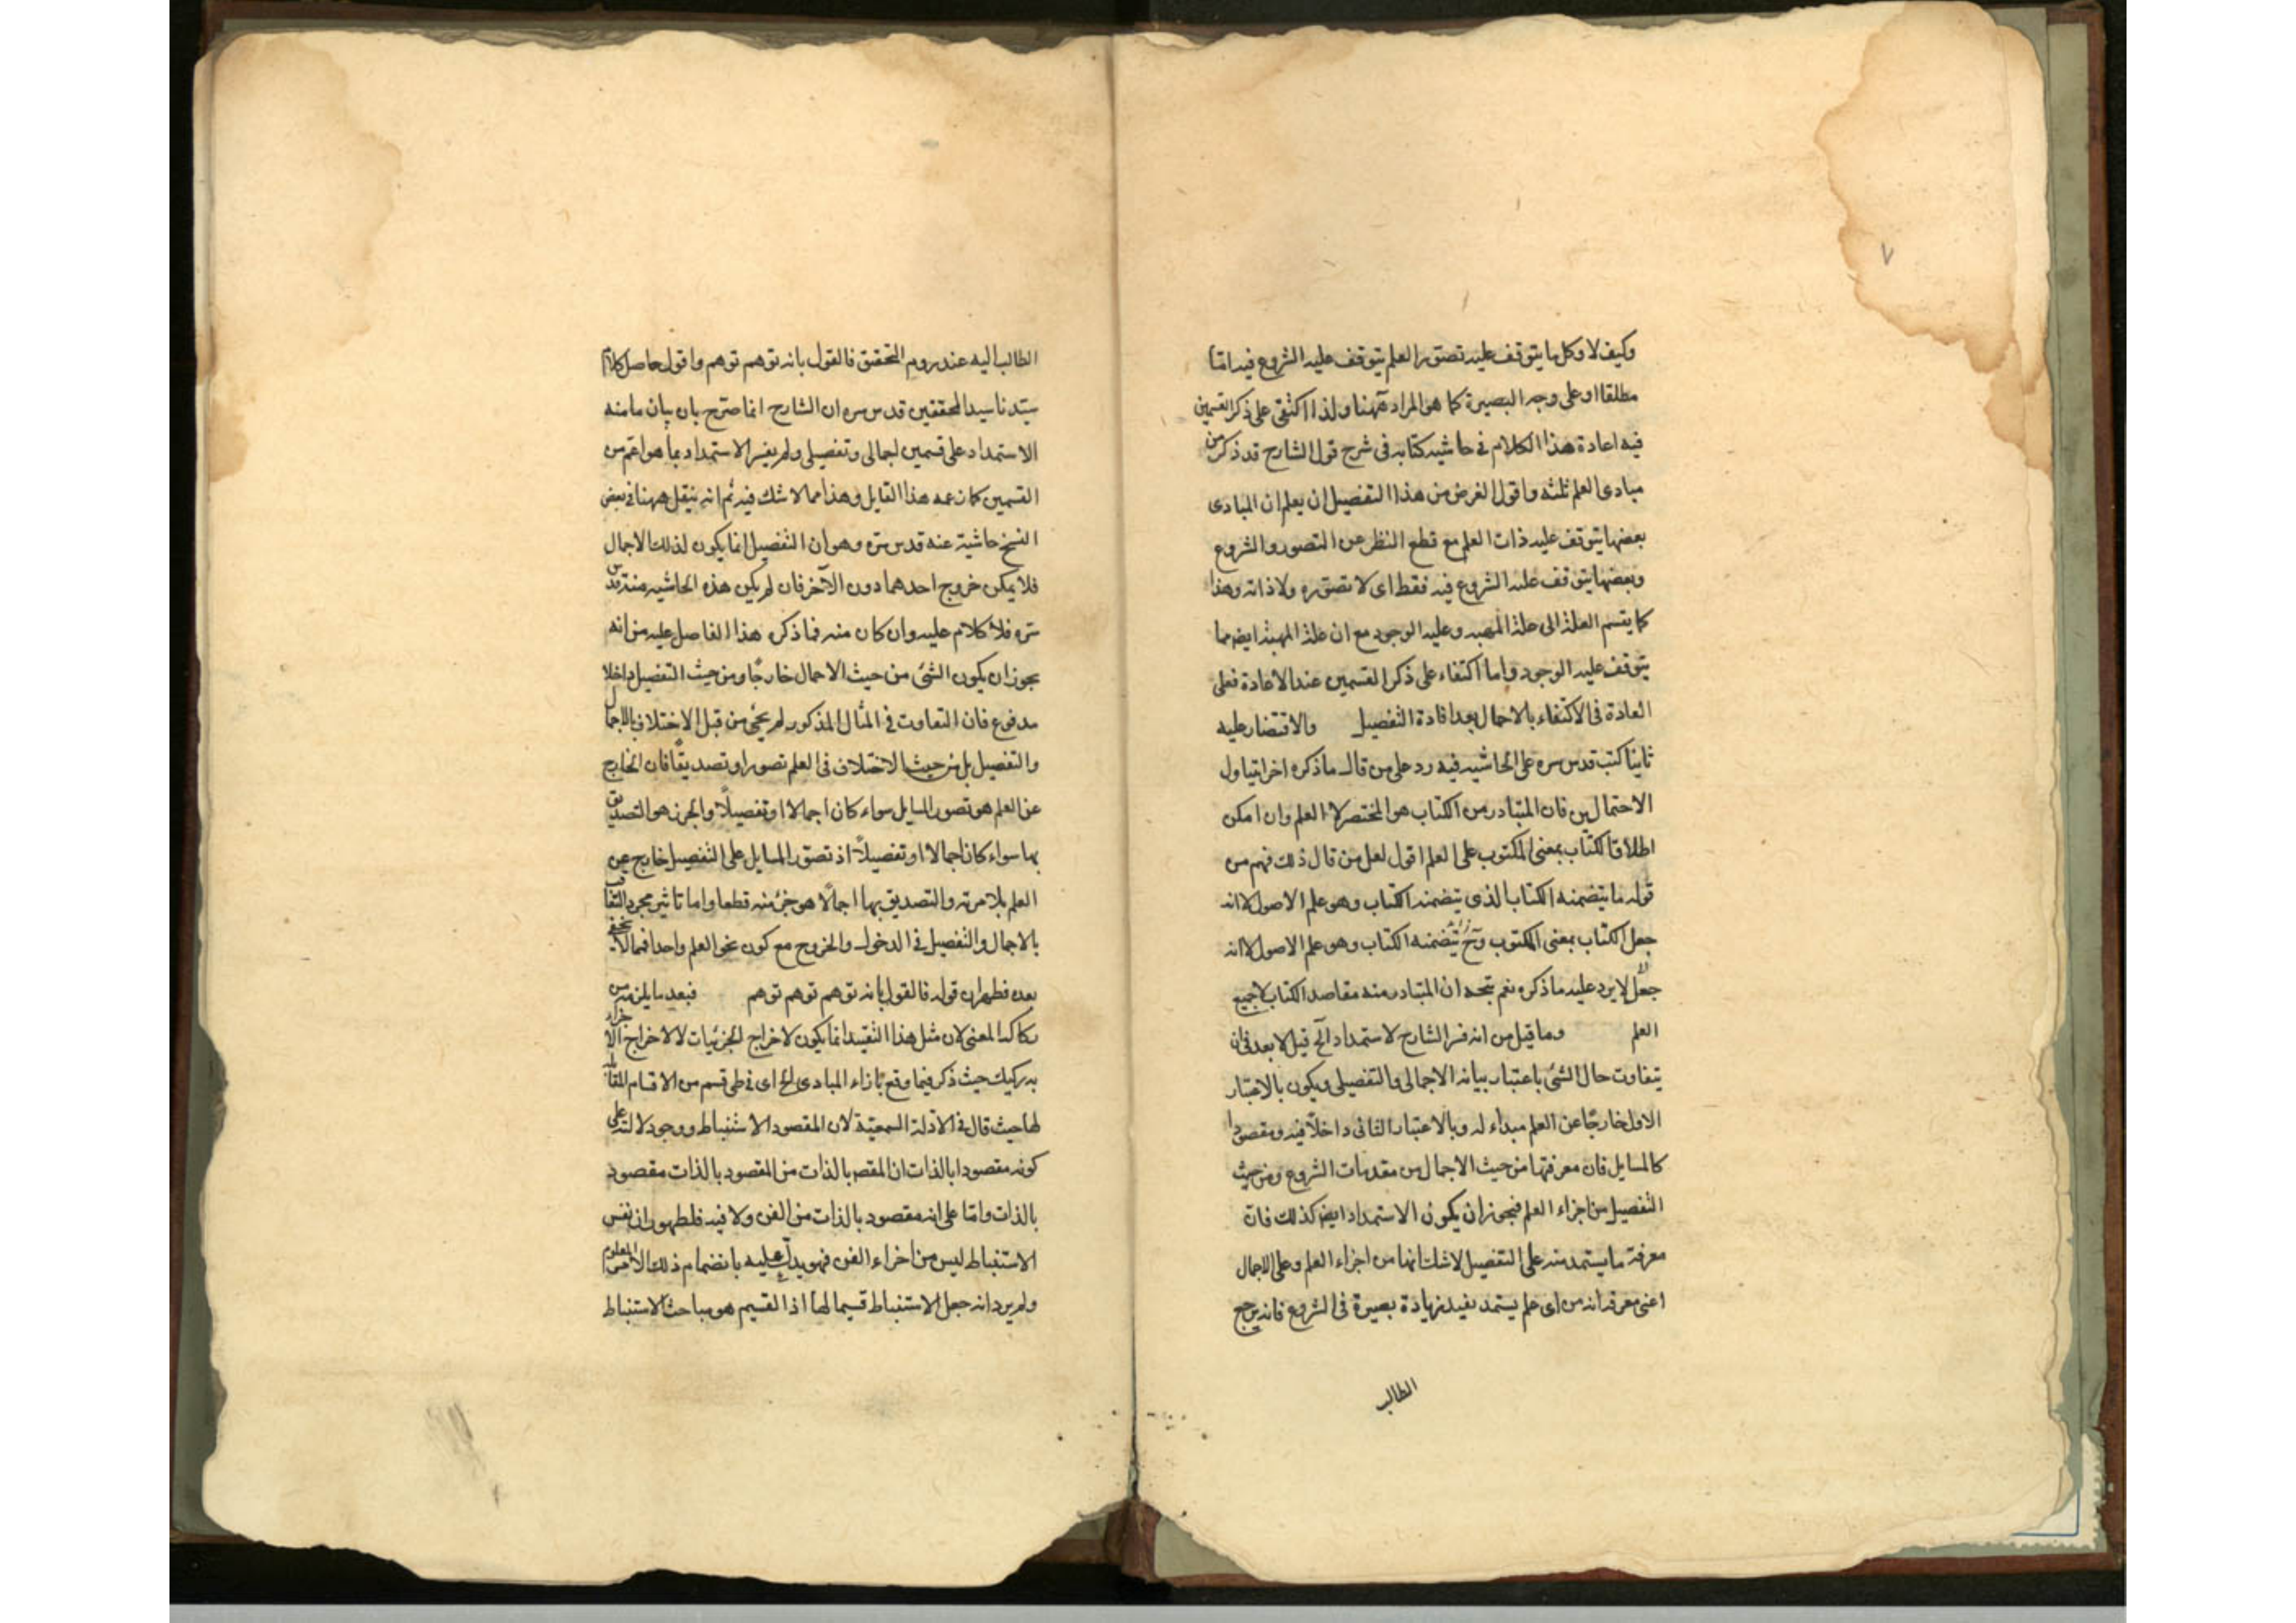 ٧
وكيف لا وكل ما يتوقف عليه تصور العلم يتوقف عليه الشروع فيه اما
مطلقا او على وجه البصيرة كما هو المراد ههنا ولذا اكتفى على ذكر القسمين
فيه اعادة هذا الكلام في حاشيه كتابه في شرح قول الشارح قد ذكر من
مبادى العلم ثلثه واقول الغرض من هذا التفصيل ان يعلم ان المبادى
بعضها يتوقف عليه ذات العلم مع قطع النظر عن التصور والشروع
وبعضها يتوقف عليه الشروع فيه فقط اى لا تصوره ولا ذاته وهذا
كما يقسم العلة الى علة المهيه وعليه الوجود مع ان علة المهية ايضا مما
يتوقف عليه الوجود واما اكتفاء على ذكر القسمين عند الاعادة فعلى
العادة فى الاكتفاء بالاجمال بعد افادة التفصيل والاقتصار عليه
ثانيا كتب قدس سره على الحاشيه فيه رد على من قال ما ذكره اخرا يتناول
الاحتمالين فان المتبادر من الكتاب هو المختصر لا العلم وان امكن
اطلاق الكتاب بمعنى المكتوب على العلم اقول لعل من قال ذلك فهم من
قوله ما يتضمنه الكتاب الذى يتضمنه الكتاب وهو علم الاصول لا انه
جعل الكتاب بمعنى المكتوب وح يتضمنه الكتاب وهو علم الاصول لا انه
جعل لا يرد عليه ما ذكره نعم يتجه ان المتبادر منه مقاصد الكتاب لا جميع
العلم وما قيل من انه فسر الشارح لاستمداد الخ قيل لا بعد فى ان
يتفاوت حال الشئ باعتبار بيانه الاجمالى والتفصيلى ويكون بالاعتبار
الاول خارجا عن العلم مبداء له وبالاعتبار الثانى داخلا فيه ومقصودا
كالمسايل فان معرفتها من حيث الاجمال من مقدمات الشروع ومن حيث
التفصيل من اجزاء العلم فيجوز ان يكون الاستمداد ايضا كذلك فان
معرفة ما يستمد منه على التفصيل لا شك انها من اجزاء العلم وعلى الاجمال
اعنى معرفة انه من اى علم يستمد يفيد زيادة بصيرة فى الشروع فانه يرجع
الطالب
الطالب اليه عند روم التحقيق فالقول بانه توهم توهم واقول حاصل كلام
سيدنا سيد المحققين قدس سره ان الشارح انما صرح بان بيان ما منه
الاستمداد على قسمين اجمالى وتفصيلى ولم يفسر الاستمداد بما هو اعم من
القسمين كما زعمه هذا القايل وهذا مما لا شك فيه ثم انه ينقل ههنا فى بعض
النسخ حاشية عنه قدس سره وهو ان التفصيل انما يكون لذلك الاجمال
فلا يمكن خروج احدهما دون الآخر فان لم يكن هذه الحاشيه منه قدس
سره فلا كلام عليه وان كان منه فما ذكره هذا الفاضل عليه من انه
يجوز ان يكون الشئ من حيث الاجمال خارجا ومن حيث التفصيل داخلا
مدفوع فان التفاوت فى المثال المذكور لم يجئ من قبل الاختلاف بالاجمال
والتفصيل بل من حيث الاختلاف فى العلم تصورا وتصديقا فان الخارج
عن العلم هو تصور المسايل سواء كان اجمالا او تفصيلا والجزء هو التصديق
بها سواء كان اجمالا او تفصيلا اذ تصور المسايل على التفصيل خارج عن
العلم بلا مرية والتصديق بها اجمالا هو جزء منه قطعا واما تاثير مجرد التفاوت
بالاجمال والتفصيل فى الدخول والخروج مع كون نحو العلم واحدا فمما لا يخفى
بعده فظهر ان قوله فالقول بانه توهم توهم توهم فبعد ما يلزمه من
ركاكة المعنى لان مثل هذا التقييد انما يكون لاخراج الجزئيات لا لاخراج الاجزاء
به ركيك حيث ذكر فيما وقع بازاء المبادى الخ اى فى طى قسم من الاقسام المقابلة
لها حيث قال فى الادلة السمعية لان المقصود الاستنباط ووجود لا لته على
كونه مقصودا بالذات ان المقصد بالذات من المقصود بالذات مقصود
بالذات واما على انه مقصود بالذات من الفن ولا فيه فلظهور ان نفس
الاستنباط ليس من اجزاء الفن فهو يدل عليه بانضمام ذلك الامر المعلوم
ولم يرد انه جعل الاستنباط قسيما لها اذ القسيم هو مباحث الاستنباط